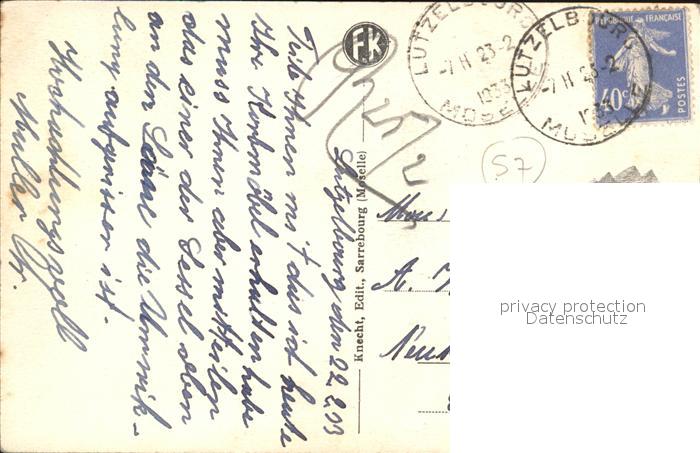 Lutzelbourg den 22.2.33
Teile Ihnen mit das ich heute
Ihre Korbmöbel erhalten habe
muss Ihnen aber mitteilen
das einer der Sessel oben
an der Lehne die Umwik-
lung aufgerissen ist.
Hochachtungsvoll
Muller Chr.
FK
Knecht, Edit., Sarrebourg (Moselle)
LUTZELBOURG
-7 H 23-2
1933
MOSELLE
LUTZELBOURG
-7 H 23-2
1933
MOSELLE
REPUBLIQUE FRANÇAISE
40c
POSTES
57
25/2
A.
privacy protection
Datenschutz